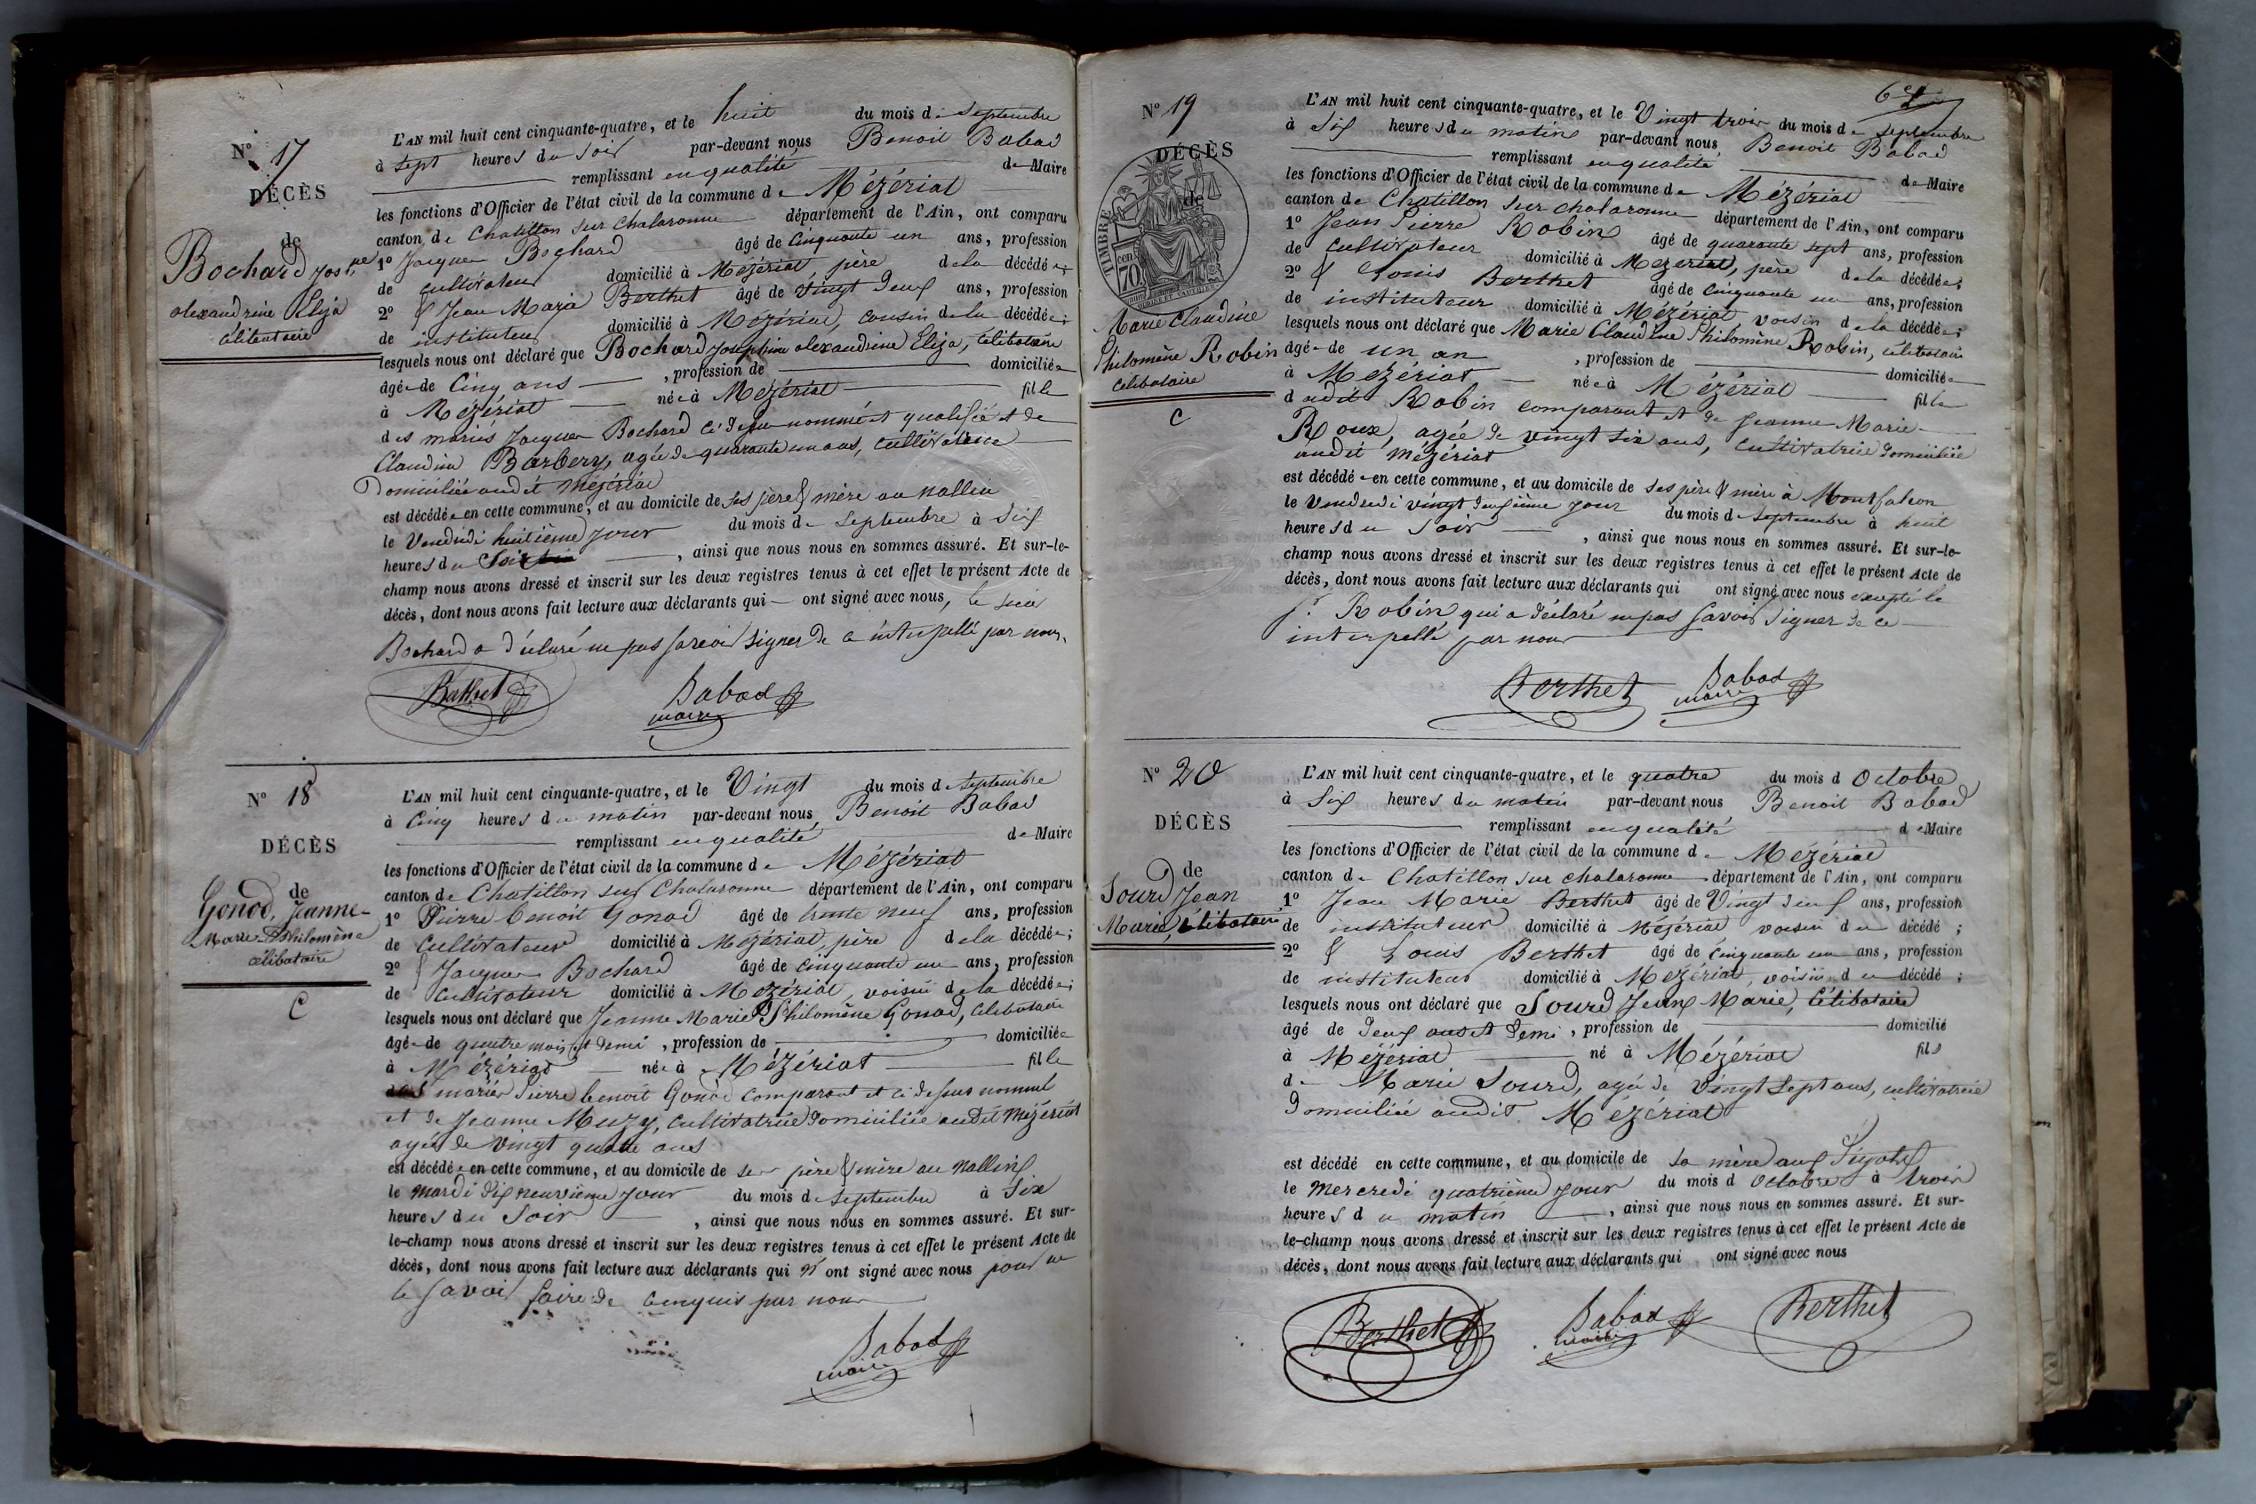 N° 17
DÉCÈS
de
Bochard Jos.ne
alexandrine Eliza
célibataire
L'AN mil huit cent cinquante-quatre, et le huit du mois de Septembre
à sept heures du soir par-devant nous Benoit Babad
remplissant en qualité de Maire
les fonctions d'Officier de l'état civil de la commune de Mézériat
canton de Chatillon sur Chalaronne département de l'Ain, ont comparu
1° Jacques Bochard âgé de Cinquante un ans, profession
de cultivateur domicilié à Mézériat, père de la décédée;
2° & Jean Marie Berthet âgé de vingt deux ans, profession
de instituteur domicilié à Mézériat, cousin de la décédée;
lesquels nous ont déclaré que Bochard Josephine alexandrine Eliza, célibataire
âgée de Cinq ans , profession de domiciliée
à Mézériat née à Mézériat fille
des mariés Jacques Bochard ci dessus nommé et qualifié et de
Claudine Barbery, agée de quarante un ans, cultivatrice
Domiciliée audit Mézériat
est décédée en cette commune, et au domicile de ses père & mère au Nallin
le Vendredi huitième jour du mois de Septembre à Six
heures du Soir , ainsi que nous nous en sommes assuré. Et sur-le-
champ nous avons dressé et inscrit sur les deux registres tenus à cet effet le présent Acte de
décès, dont nous avons fait lecture aux déclarants qui ont signé avec nous, le sieur
Bochard a déclaré ne pas savoir signer de ce interpellé par nous.
Berthet Babad
maire
N° 18
DÉCÈS
de
Gonod, Jeanne-
Marie-Philomène
célibataire
C
L'AN mil huit cent cinquante-quatre, et le Vingt du mois de Septembre
à Cinq heures du matin par-devant nous Benoit Babad
remplissant en qualité de Maire
les fonctions d'Officier de l'état civil de la commune de Mézériat
canton de Chatillon sur Chalaronne département de l'Ain, ont comparu
1° Pierre benoit Gonod âgé de trente neuf ans, profession
de Cultivateur domicilié à Mézériat, père de la décédée;
2° & Jacques Bochard âgé de cinquante un ans, profession
de Cultivateur domicilié à Mézériat, voisin de la décédée;
lesquels nous ont déclaré que Jeanne Marie Philomène Gonod, célibataire
âgée de quatre mois et demi , profession de domiciliée
à Mézériat née à Mézériat fille
des mariés Pierre benoit Gonod comparant et ci dessus nommé
et de Jeanne Muzy, cultivatrice domiciliée audit Mézériat
agée de vingt quatre ans
est décédée en cette commune, et au domicile de ses père & mère au Nallin
le mardi dix neuvième jour du mois de Septembre à Six
heures du Soir , ainsi que nous nous en sommes assuré. Et sur-
le-champ nous avons dressé et inscrit sur les deux registres tenus à cet effet le présent Acte de
décès, dont nous avons fait lecture aux déclarants qui n'ont signé avec nous pour ne
le savoir faire de ce requis par nous
Babad
maire
N° 19
DÉCÈS
de
TIMBRE
70 cen
Marie Claudine
Philomène Robin
célibataire
C
L'AN mil huit cent cinquante-quatre, et le Vingt trois du mois de Septembre
à Six heures du matin par-devant nous Benoit Babad
remplissant en qualité de Maire
les fonctions d'Officier de l'état civil de la commune de Mézériat
canton de Chatillon sur chalaronne département de l'Ain, ont comparu
1° Jean Pierre Robin âgé de quarante sept ans, profession
de Cultivateur domicilié à Mézériat, père de la décédée;
2° & Louis Berthet âgé de Cinquante un ans, profession
de instituteur domicilié à Mézériat, voisin de la décédée;
lesquels nous ont déclaré que Marie Claudine Philomène Robin, célibataire
âgée de un an , profession de domiciliée
à Mézériat née à Mézériat fille
dudit Robin comparant et de Jeanne Marie
Roux, agée de vingt six ans, cultivatrice domiciliée
audit Mézériat
est décédée en cette commune, et au domicile de ses père & mère à Montfalcon
le Vendredi vingt deuxième jour du mois de Septembre à huit
heures du Soir , ainsi que nous nous en sommes assuré. Et sur-le-
champ nous avons dressé et inscrit sur les deux registres tenus à cet effet le présent Acte de
décès, dont nous avons fait lecture aux déclarants qui ont signé avec nous excepté le
sr. Robin qui a déclaré ne pas savoir signer de ce
interpellé par nous
Berthet Babad
maire
N° 20
DÉCÈS
de
Sourd Jean
Marie, célibataire
L'AN mil huit cent cinquante-quatre, et le quatre du mois d Octobre
à Six heures du matin par-devant nous Benoit Babad
remplissant en qualité de Maire
les fonctions d'Officier de l'état civil de la commune de Mézériat
canton de Chatillon sur chalaronne département de l'Ain, ont comparu
1° Jean Marie Berthet âgé de Vingt deux ans, profession
de instituteur domicilié à Mézériat voisin du décédé ;
2° & Louis Berthet âgé de Cinquante un ans, profession
de instituteur domicilié à Mézériat, voisin du décédé ;
lesquels nous ont déclaré que Sourd Jean Marie, célibataire
âgé de deux ans et demi , profession de domicilié
à Mézériat né à Mézériat fils
de Marie Sourd, agée de vingt sept ans, cultivatrice
domiciliée audit Mézériat
est décédé en cette commune, et au domicile de sa mère aux
le Mercredi quatrième jour du mois d Octobre à trois
heures du matin , ainsi que nous nous en sommes assuré. Et sur-
le-champ nous avons dressé et inscrit sur les deux registres tenus à cet effet le présent Acte de
décès, dont nous avons fait lecture aux déclarants qui ont signé avec nous
Berthet Babad Berthet
maire